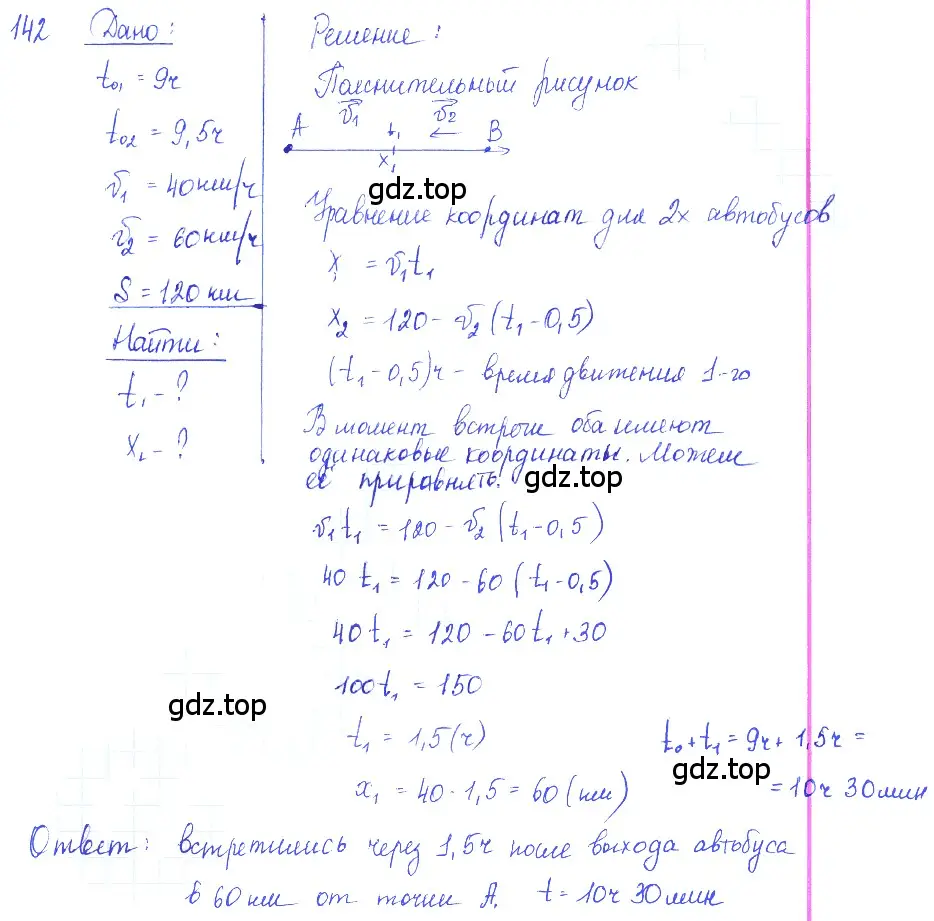 142 Дано:
t₀₁ = 9ч
t₀₂ = 9,5ч
v₁ = 40км/ч
v₂ = 60км/ч
S = 120 км
Найти:
t₁ - ?
x₁ - ?
Решение:
Пояснительный рисунок
A v₁ t₁ v₂ B
x₁
gdz.top
Уравнение координат для 2х автобусов
x₁ = v₁t₁
x₂ = 120 - v₂ (t₁ - 0,5)
(t₁ - 0,5)ч - время движения 1-го
В момент встречи оба имеют
одинаковые координаты. Можем
её приравнять.
gdz.top
v₁t₁ = 120 - v₂ (t₁ - 0,5)
40 t₁ = 120 - 60 (t₁ - 0,5)
40 t₁ = 120 - 60t₁ + 30
100t₁ = 150
gdz.top
t₁ = 1,5(ч)
x₁ = 40 · 1,5 = 60 (км)
t₀ + t₁ = 9ч + 1,5ч =
gdz.top
= 10ч 30мин
Ответ: встретились через 1,5ч после выхода автобуса
в 60 км от точки А. t = 10ч 30мин